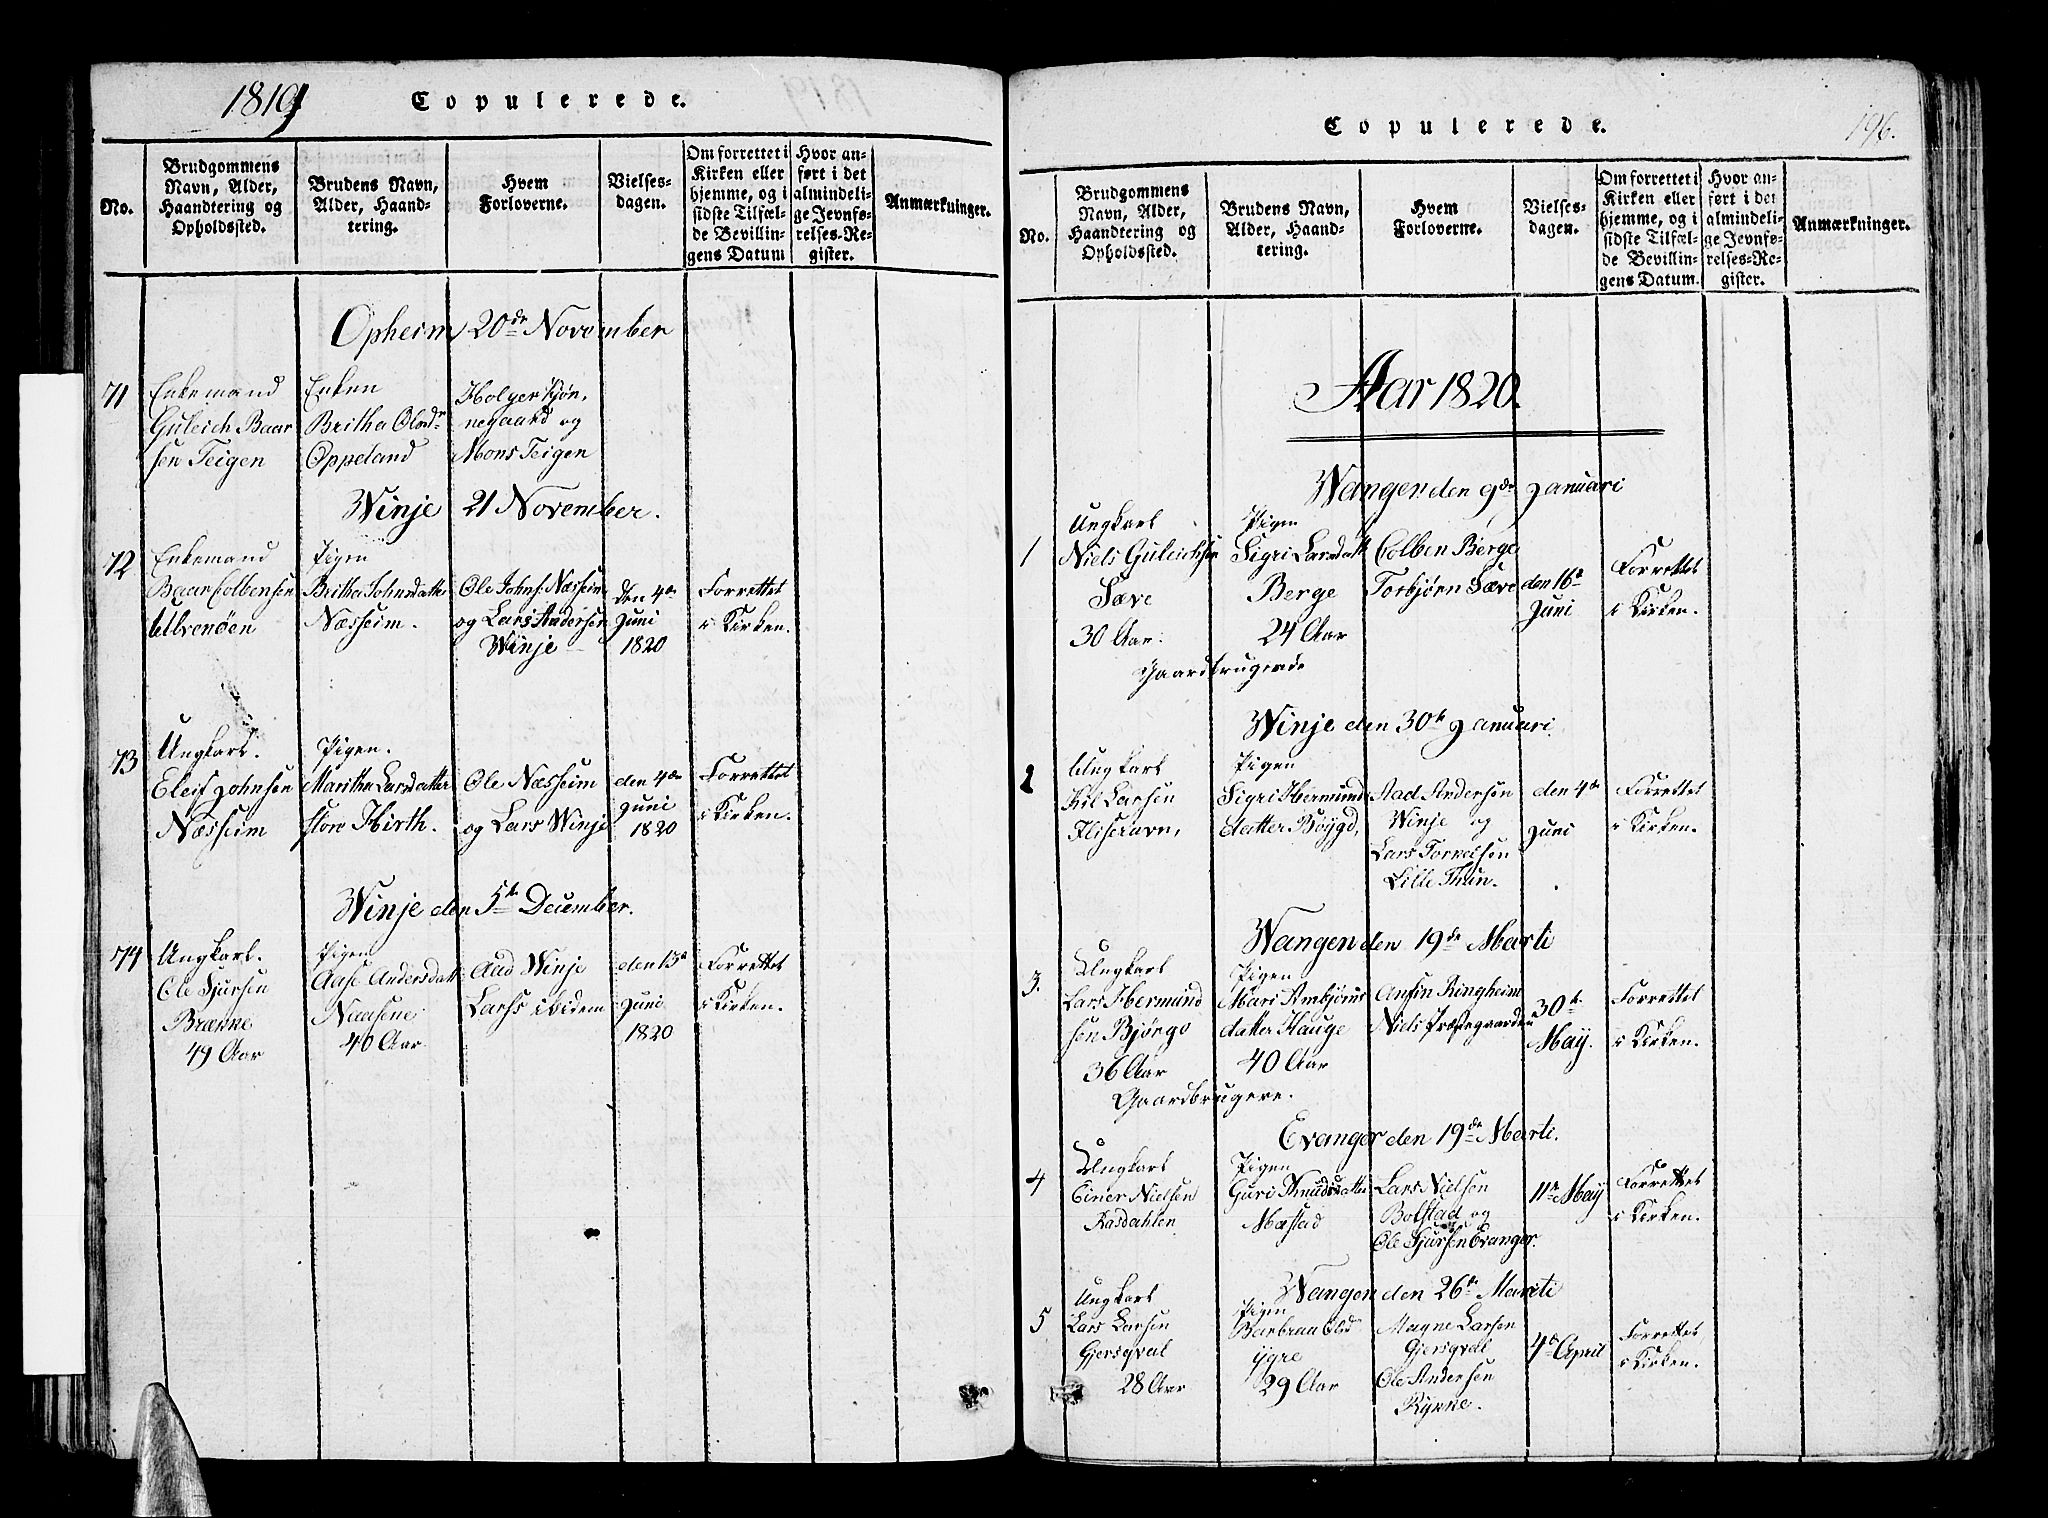 1819
Copulerede.
No.
Brudgommens
Navn, Alder,
Haandtering og
Opholdssted.
Brudens Navn,
Alder, Haand-
tering.
Hvem
Forloverne.
Vielses-
dagen.
Om forrettet i
Kirken eller
hjemme, og i
sidste Tilfæl-
de Bevillin-
gens Datum
Hvor an-
ført i det
almindeli-
ge Jevnfø-
relses-Re-
gister.
Anmærkninger.
Opheim 20de November
71
Enkemand
Guleich Baar
sen Teigen
Enken
Britha Olsd
Oppeland
Holger
negaard og
Mons Teigen
Winje 21 November.
72
Enkemand
Baar Colbensen
Ulvenøen
Pigen
Britha Johnsdatter
Næsheim.
Ole Johns: Næsheim
og Lars Andersen
Winje
den 4de
Juni
1820
Forrettet
i Kirken.
73
Ungkarl.
Eleif Johnsen
Næsheim
Pigen.
Maritha Larsdatter
store Hirth.
Ole Næsheim
og Lars Winje
den 4de
Juni
1820
Forrettet
i Kirken.
Winje den 5te December.
74
Ungkarl.
Ole Sjursen
Brænne
49 Aar
Pigen
Aase Andersdatt
Naasene
40 Aar.
Aad Winje
Lars ibidem
den 13de
Juni
1820
Forrettet
i Kirken.
Copulerede.
196.
No.
Brudgommens
Navn, Alder,
Haandtering og
Opholdssted.
Brudens Navn,
Alder, Haand-
tering.
Hvem
Forloverne.
Vielses-
dagen.
Om forrettet i
Kirken eller
hjemme, og i
sidste Tilfæl-
de Bevillin-
gens Datum.
Hvor an-
ført i det
almindeli-
ge Jevnfø-
relses-Re-
gister.
Anmærkninger.
Aar 1820.
Wangen den 9de Januari
1
Ungkarl
Niels Guleichsen
Sæve
30 Aar.
Pigen
Sigri Larsdatt
Berge
24 Aar
Colben Berge
Torbjørn Sæve
den 16de
Juni
Forrettet
i Kirken.
Gaardbrugende
Winje den 30te Januari.
2
Ungkarl
Kil Larsen
Pigen
Sigri Hermund
datter Bøygd,
Aad Andersen
Winje og
Lars Torkelsen
Lille Thun.
den 4de
Juni
Forrettet
i Kirken.
Wangen den 19de Marti
3.
Ungkarl
Lars Hermund
sen Bjørgo
36 Aar
Pigen
Mari Ambjørns
datter Hauge
40 Aar
Anfin Ringheim
Niels Præstegaarden
30te
May.
Forrettet
i Kirken.
Gaardbrugere.
Evanger den 19de Marti.
4
Ungkarl
Einer Nielsen
Rasdahlen
Pigen
Guri Knudsdatter
Mæstad
Lars Nielsen
Bolstad og
Ole Sjursen Evanger.
11te May
Forrettet
i Kirken.
Wangen den 26de Marti
5
Ungkarl
Lars Larsen
Gjersqval
28 Aar
Pigen
Barbra Olsd
Ygre
29 Aar
Magne Larsen
Gjersqval
Ole Andersen
Rykne.
4de April
Forrettet
i Kirken.